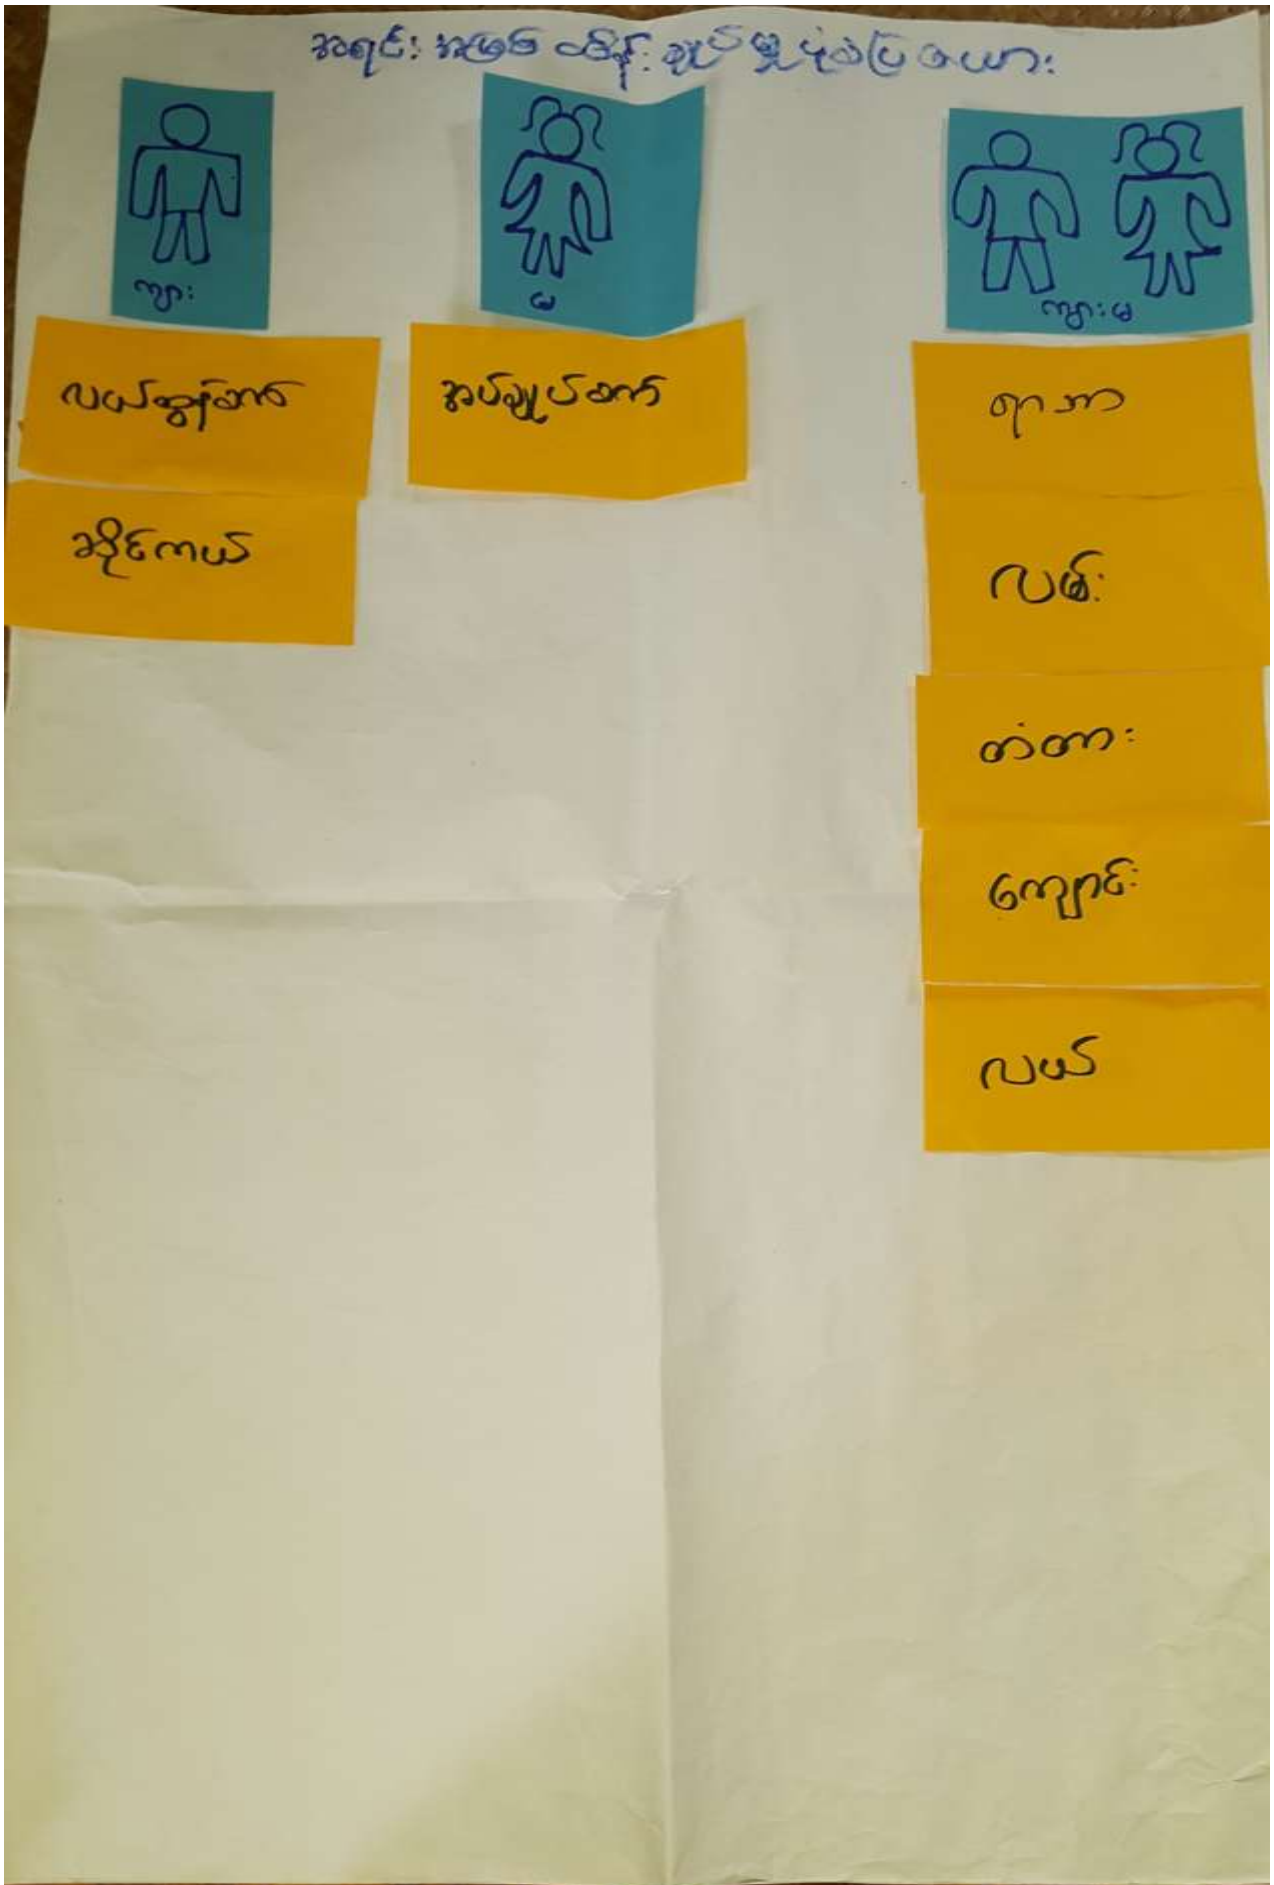 အရင်းအမြစ် ထိန်းချုပ်မှု ပုံစံပြ ဇယား
ကျား
မ
ကျားမ
လယ်ထွန်စက်
အပ်ချုပ်စက်
ရာဘာ
ဆိုင်ကယ်
လမ်း
တံတား
ကျောင်း
လယ်